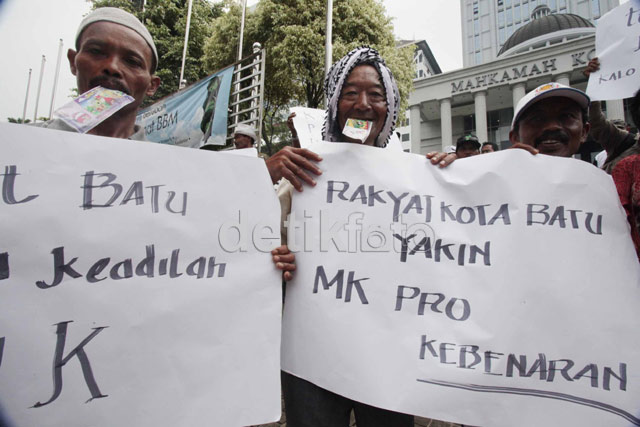 BBM
MAHKAMAH KO
KALO
t BATU
Keadilah
K
RAKYAT KOTA BATU
YAKIN
MK PRO
KEBENARAN
detikfoto